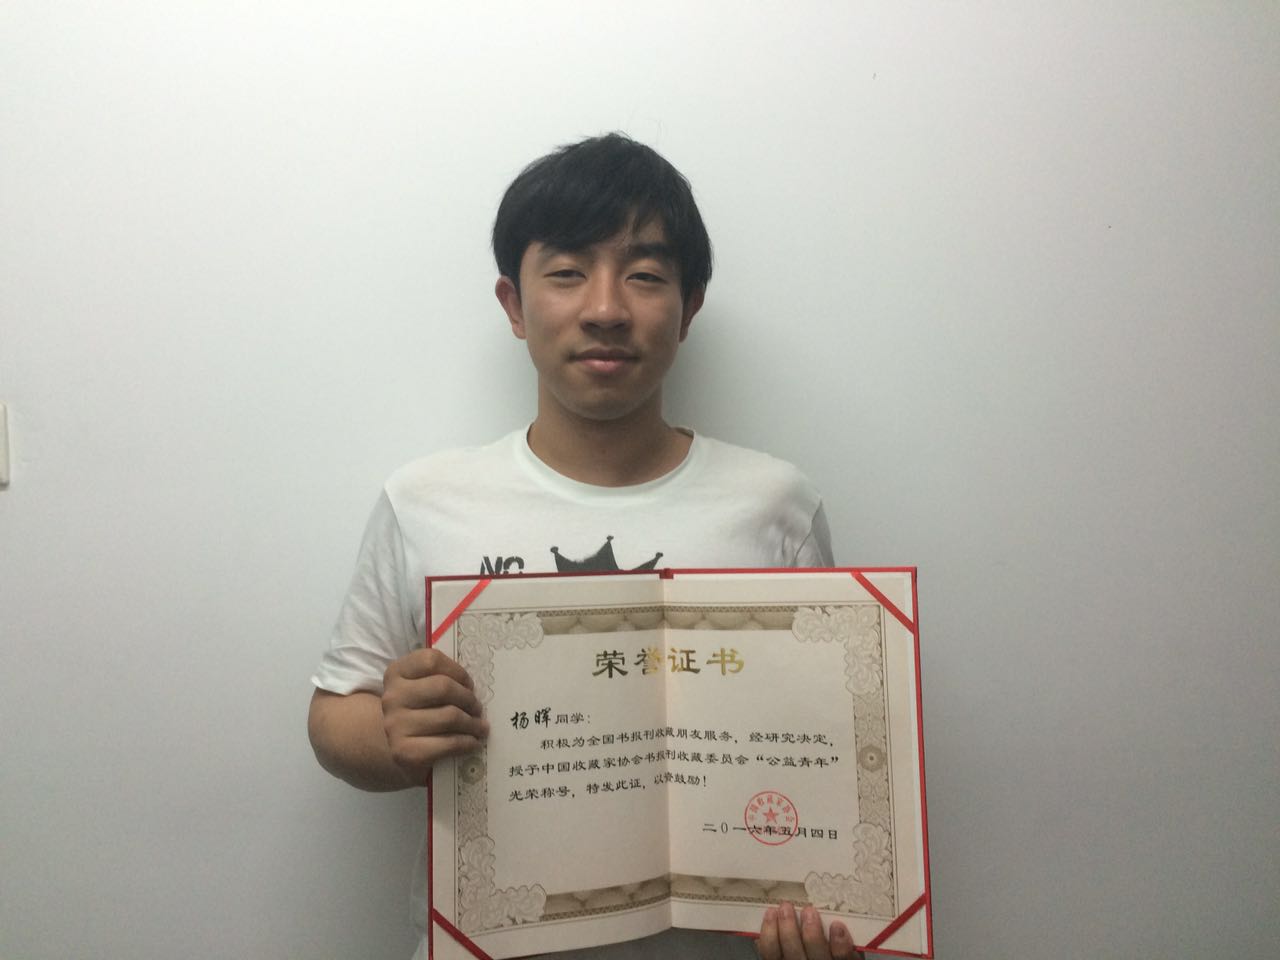 NO
荣誉证书
杨晖同学：
积极为全国书报刊收藏朋友服务，经研究决定，
授予中国收藏家协会书报刊收藏委员会“公益青年”
光荣称号，特发此证，以资鼓励！
中国收藏家协会
二〇一六年五月四日